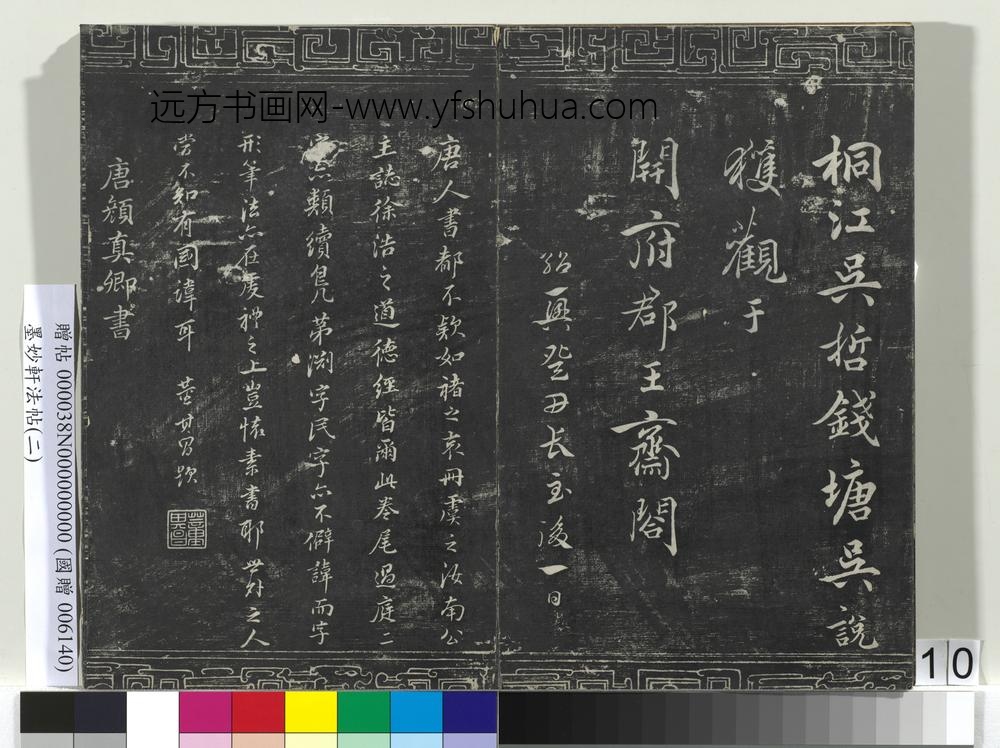 远方书画网-www.yfshuhua.com
桐江吳哲錢塘吳說
獲觀于
開府郡王齋閣
紹興癸丑長至後一日
唐人書都不款如褚之哀冊虞之汝南公
主誌徐浩之道德經皆爾此卷尾過庭二
字亦類續鳧第淵字民字亦不僻諱而字
形筆法亦在度禮之上豈懷素書耶 之人
勞不知有國諱耳 董其昌跋
唐顏真卿書
贈帖 000038N000000000 (國贈 006140)
墨妙軒法帖(二)
10